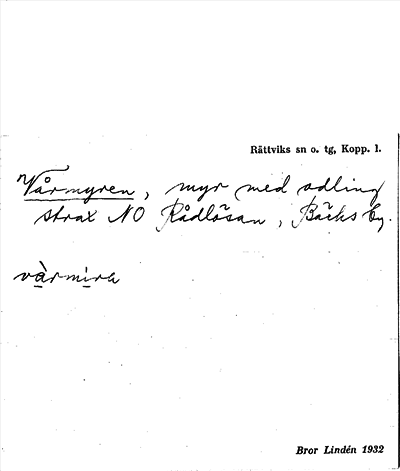 Rättviks sn o. tg, Kopp. l.
Vårmyren, myr med odling
strax NO Rådlösan, Bäcks by.
vàrmira
Bror Lindén 1932